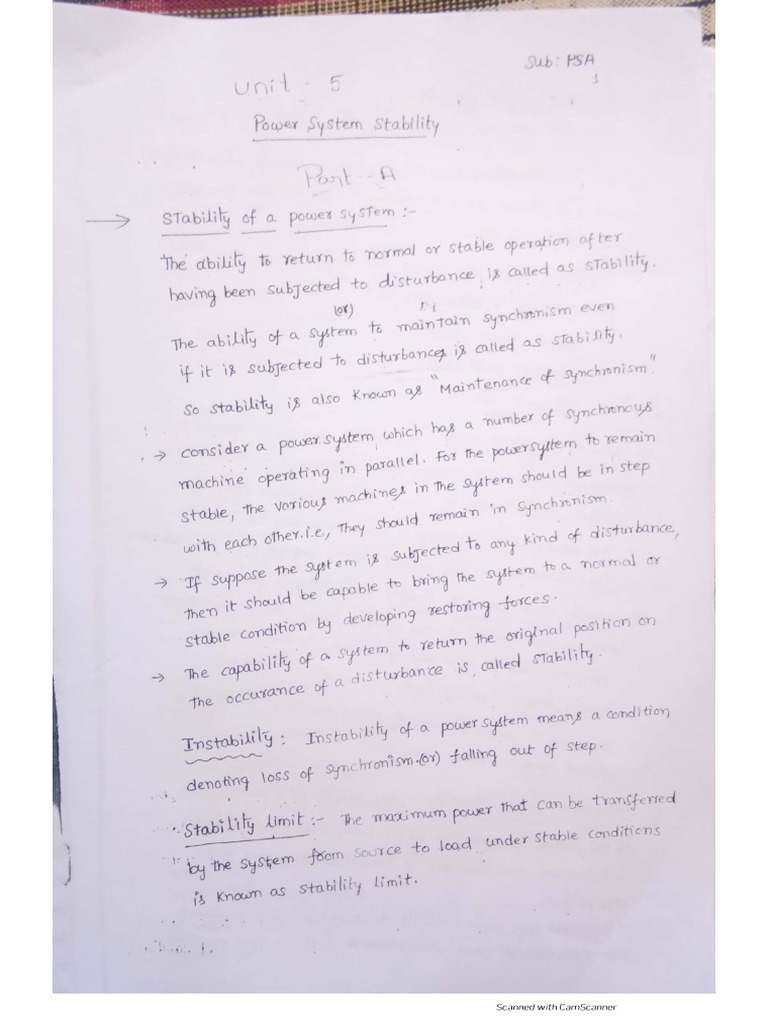 Sub: PSA
1
Unit - 5
Power System Stability
Part - A
→ Stability of a power system :-
The ability to return to normal or stable operation after
having been subjected to disturbance, is called as stability.
(or)
The ability of a system to maintain synchronism even
if it is subjected to disturbances is called as stability.
So stability is also known as "Maintenance of synchronism"
→ consider a power system, which has a number of synchronous
machine operating in parallel. For the powersystem to remain
stable, the various machines in the system should be in step
with each other. i.e., They should remain in synchronism.
→ If suppose the system is subjected to any kind of disturbance,
then it should be capable to bring the system to a normal or
stable condition by developing restoring forces.
→ The capability of a system to return the original position on
the occurance of a disturbance is called stability.
Instability : Instability of a power system means a condition
denoting loss of synchronism. (or) falling out of step.
Stability limit :- The maximum power that can be transferred
by the system from source to load under stable conditions
is known as stability limit.
Scanned with CamScanner